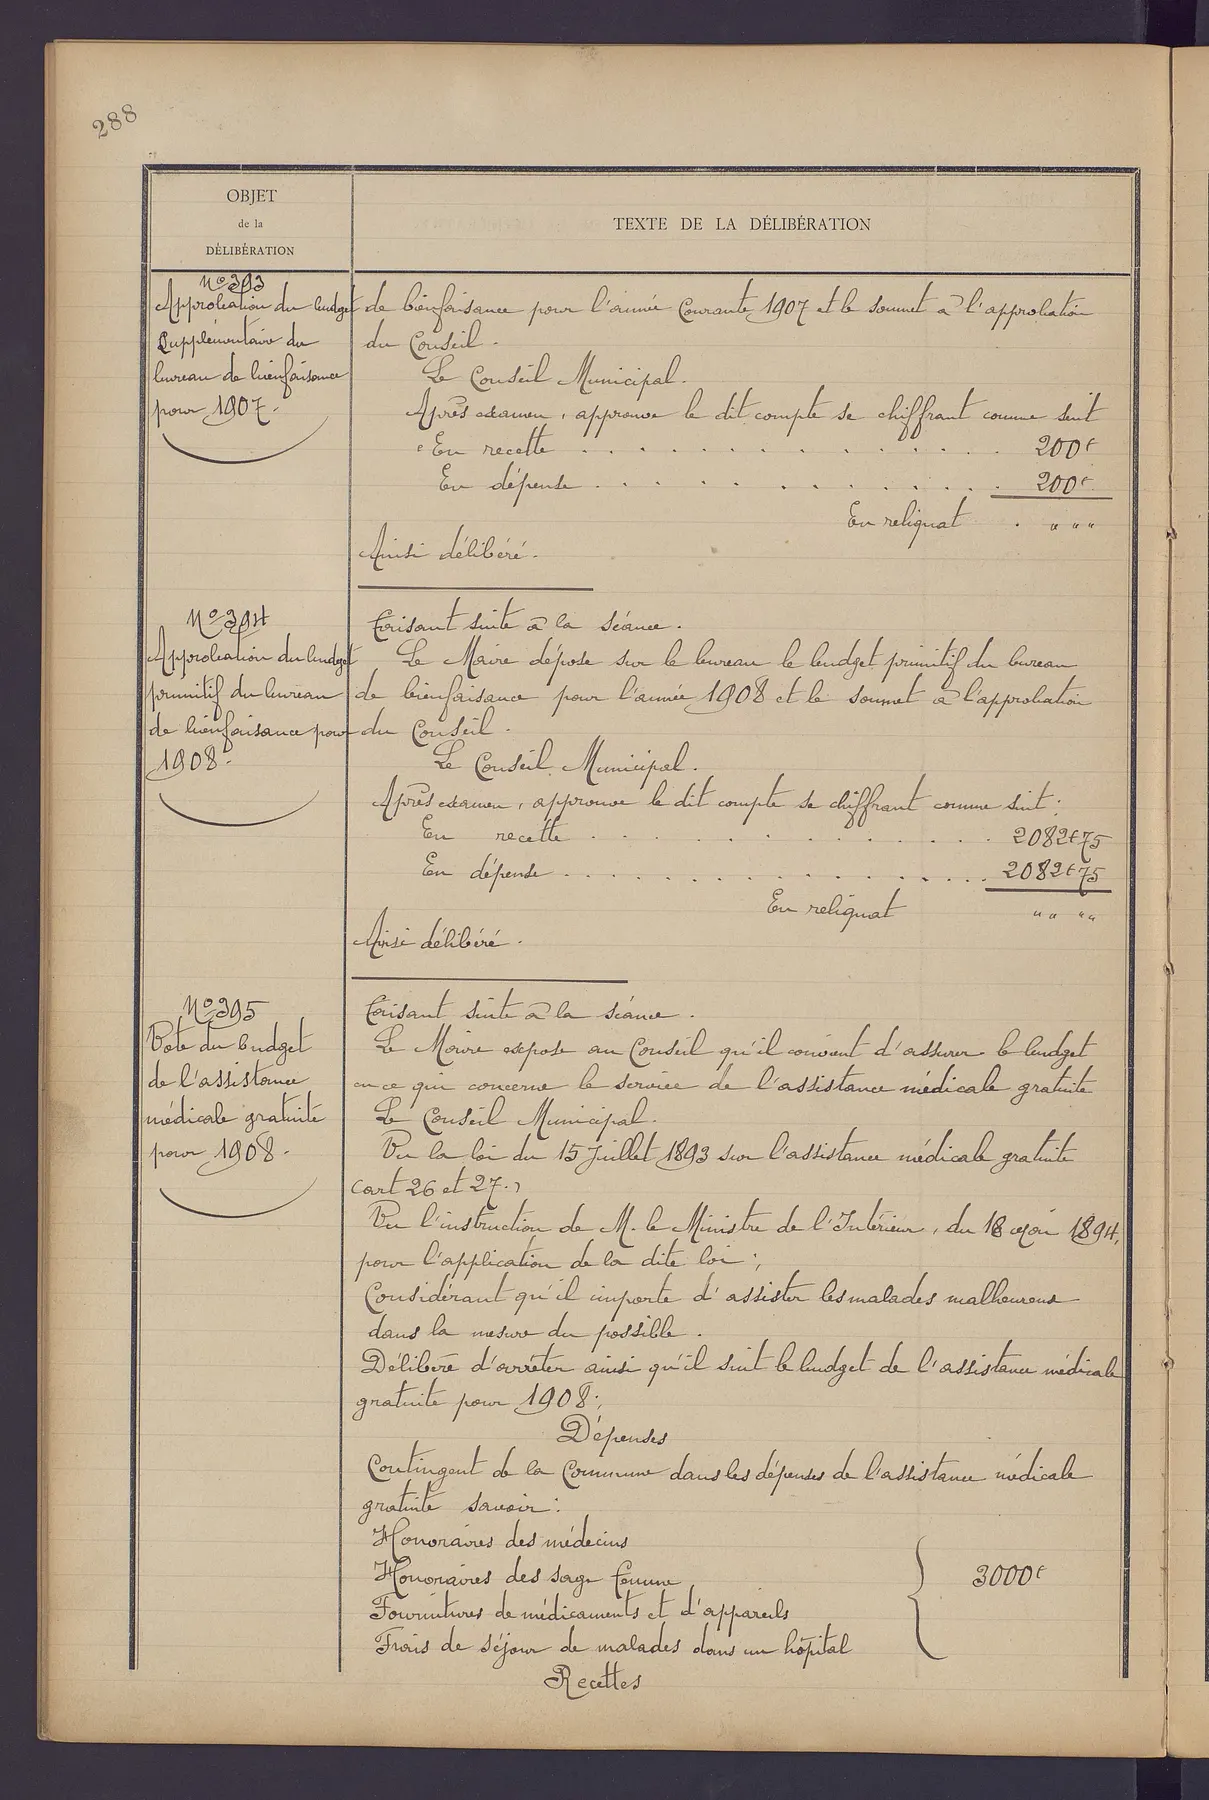 288
OBJET
de la
DÉLIBÉRATION
TEXTE DE LA DÉLIBÉRATION
No 393
Approbation du budget
supplémentaire du
bureau de bienfaisance
pour 1907.
de bienfaisance pour l'année courante 1907 et le soumet à l'approbation
du Conseil.
Le Conseil Municipal.
Après examen, approuve le dit compte se chiffrant comme suit
En recette . . . . . . . . . . . . . . . 200f
En dépense . . . . . . . . . . . . 200f
En reliquat . " " "
Ainsi délibéré.
No 394
Approbation du budget
primitif du bureau
de bienfaisance pour
1908.
Faisant suite à la séance.
Le Maire dépose sur le bureau le budget primitif du bureau
de bienfaisance pour l'année 1908 et le soumet à l'approbation
du Conseil.
Le Conseil Municipal.
Après examen, approuve le dit compte se chiffrant comme suit :
En recette . . . . . . . . . . 2082f75
En dépense . . . . . . . . . . . . . . 2082f75
En reliquat " " " "
Ainsi délibéré.
No 395
Vote du budget
de l'assistance
médicale gratuite
pour 1908.
Faisant suite à la séance.
Le Maire expose au Conseil qu'il convient d'assurer le budget
en ce qui concerne le service de l'assistance médicale gratuite
Le Conseil Municipal.
Vu la loi du 15 Juillet 1893 sur l'assistance médicale gratuite
(art 26 et 27.)
Vu l'instruction de M. le Ministre de l'Intérieur, du 18 Mai 1894,
pour l'application de la dite loi ;
Considérant qu'il importe d'assister les malades malheureux
dans la mesure du possible.
Délibère d'arrêter ainsi qu'il suit le budget de l'assistance médicale
gratuite pour 1908 ;
Dépenses
Contingent de la Commune dans les dépenses de l'assistance médicale
gratuite savoir :
Honoraires des médecins
Honoraires des sage femme
Fournitures de médicaments et d'appareils
Frais de séjour de malades dans un hôpital
3000f
Recettes